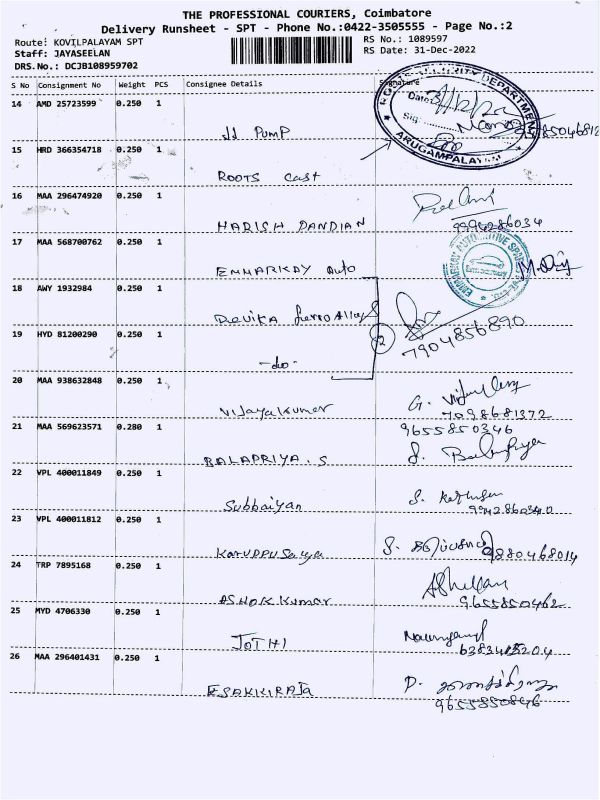 THE PROFESSIONAL COURIERS, Coimbatore
Delivery Runsheet - SPT - Phone No.:0422-3505555 - Page No.:2
Route: KOVILPALAYAM SPT RS No.: 1089597
Staff: JAYASEELAN RS Date: 31-Dec-2022
DRS.No.: DCJB108959702
S No Consignment No Weight PCS Consignee Details Signature
14 AMD 25723599 0.250 1
JJ PUMP
15 HRD 366354718 0.250 1
ROOTS cast
ARUGAMPALAYAM
16 MAA 296474920 0.250 1
HARISH PANDIAN 9994286034
17 MAA 568700762 0.250 1
EMMARKAY Auto
18 AWY 1932984 0.250 1
Devika ferro Alloys
19 HYD 81200290 0.250 1
-do- 2 7904856890
20 MAA 938632848 0.250 1
Vijayakumar G.
7098681372
21 MAA 569623571 0.280 1 9655850346
BALAPRIYA. S S.
22 VPL 400011849 0.250 1
Subbaiyan S.
23 VPL 400011812 0.250 1
Karuppusamy S. 9880468014
24 TRP 7895168 0.250 1
ASHOK Kumar 9655850462
25 MYD 4706330 0.250 1
JOTHI
26 MAA 296401431 0.250 1
ESAKKIRAJA P.
9655850846